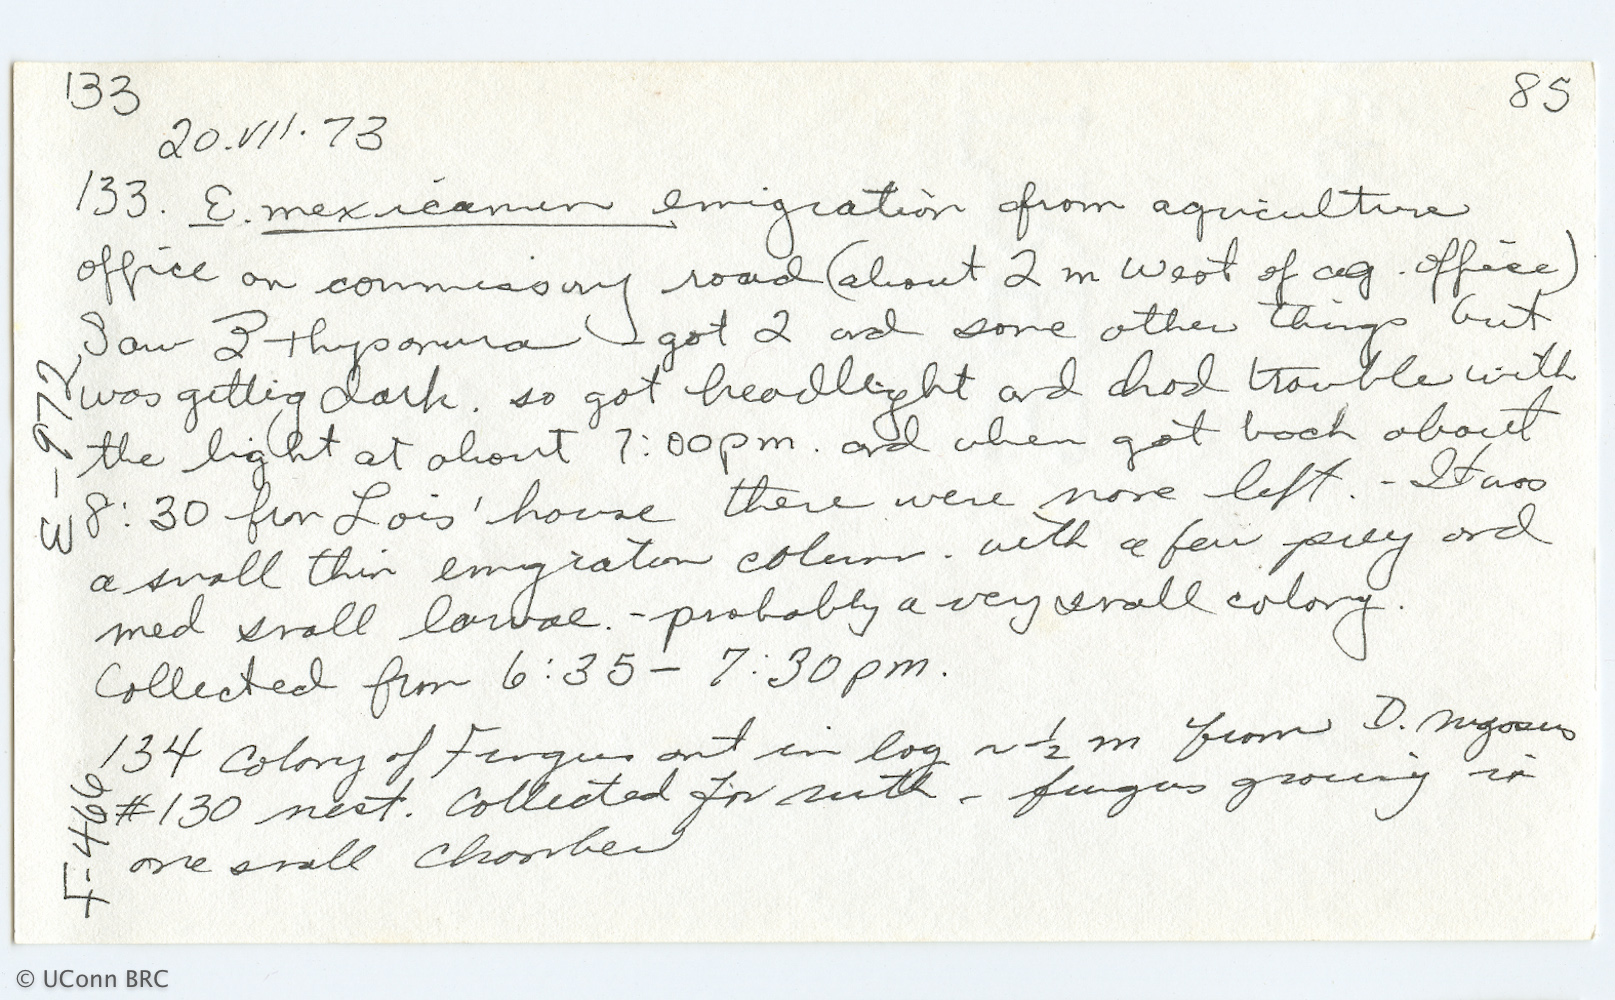 133
85
20.VII.73
133. E. mexicanum emigration from agriculture
office on commissary road (about 2 m west of ag. office)
Saw 3 thysanura - got 2 and some other things but
was gettig dark. so got headlight and had trouble with
the light at about 7:00pm. and when got back about
8:30 from Lois' house there were none left. - It was
a small thin emigration column. with a few prey and
med small larvae. - probably a very small colony.
Collected from 6:35 - 7:30pm.
134 Colony of Fungus ant in log ~ 1/2 m from D. rugosus
#130 nest. Collected for ruth - fungus growing in
one small chamber
E-972
F-466
© UConn BRC